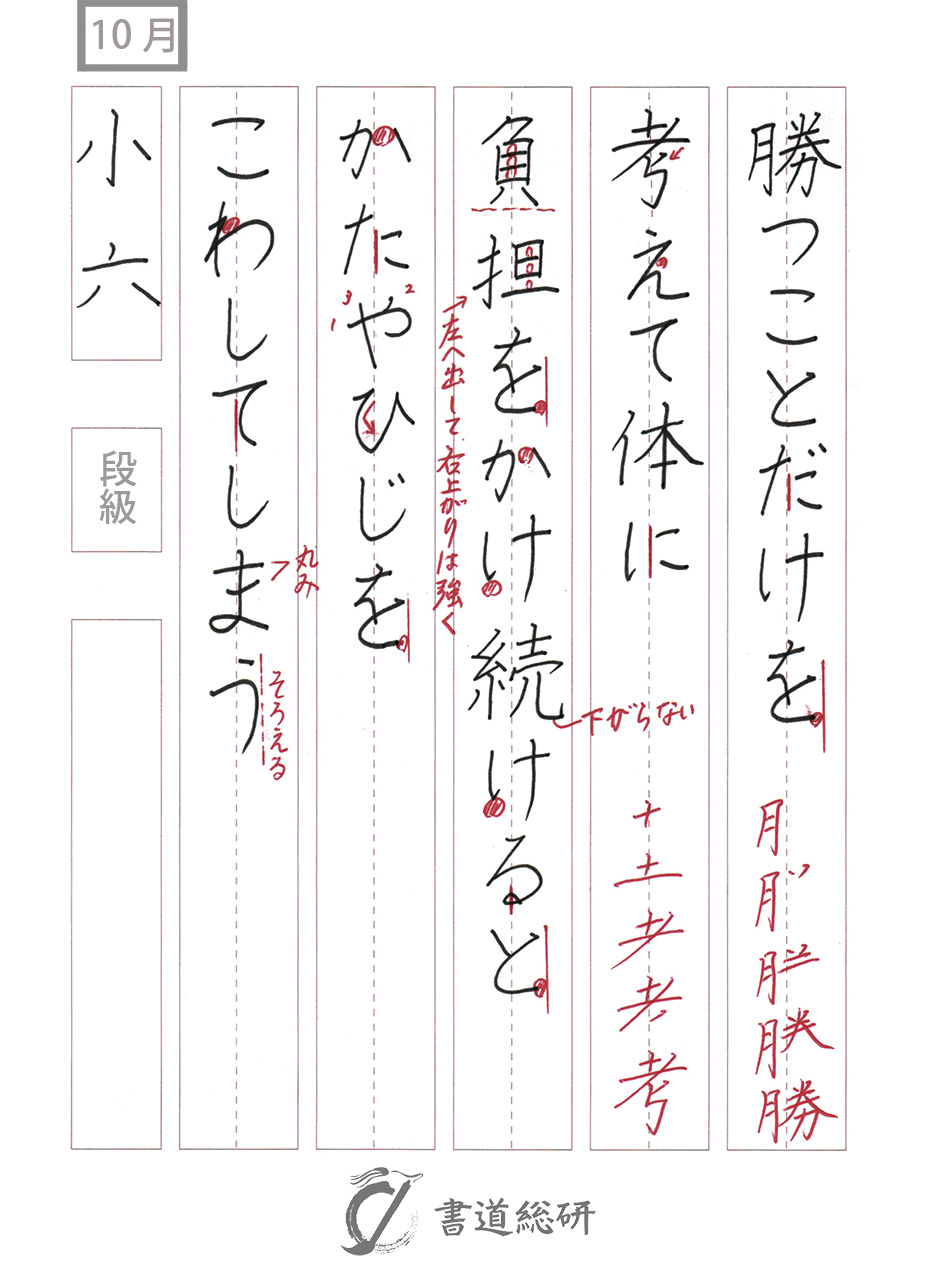 10月
勝つことだけを
月
考えて体に
十 土 耂 考
負担をかけ続けると
下がらない
左へ出して右上がりは強く
かたやひじを
3
1
2
こわしてしまう
丸み
そろえる
小六
段級
書道総研